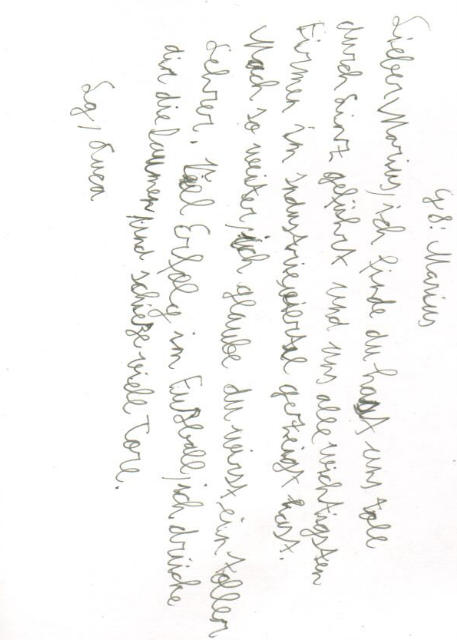 G8: Marius
Lieber Marius, ich finde du hast uns tolle
durch geführt und uns alle wichtigsten
Firmen im Industrieviertel gezeigt hast.
Mach so weiter, ich glaube du wirst ein toller
Lehrer. Viel Erfolg im Fußball, ich drücke
dir die Daumen und schieße viele Tore.
Lg, Luca